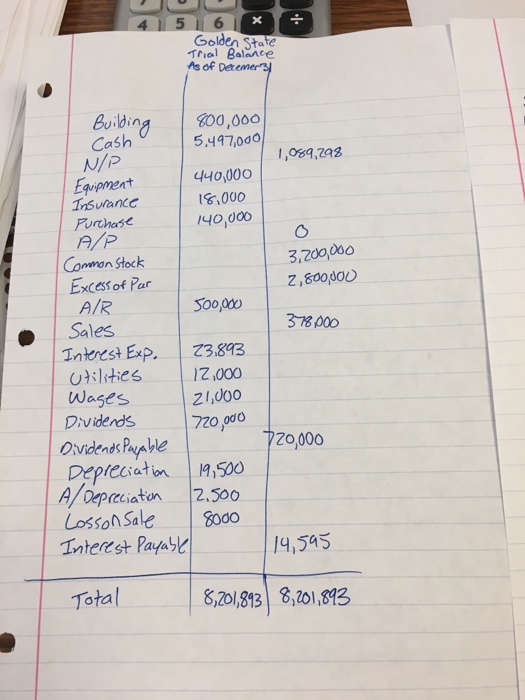 4 5 6 × ÷
Golden State
Trial Balance
As of Decemer 31
Building 800,000
Cash 5,497,000
N/P 1,089,298
Equipment 440,000
Insurance 18,000
Purchase 140,000
A/P 0
Common Stock 3,200,000
Excess of Par 2,800,000
A/R 500,000
Sales 378,000
Interest Exp. 23,893
Utilities 12,000
Wages 21,000
Dividends 720,000
Dividends Payable 720,000
Depreciation 19,500
A/Depreciation 2,500
Loss on Sale 8000
Interest Payable 14,595
Total 8,201,893 8,201,893